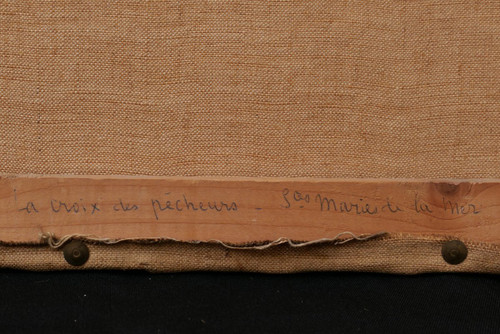 La croix des pêcheurs - Stes Marie de la Mer